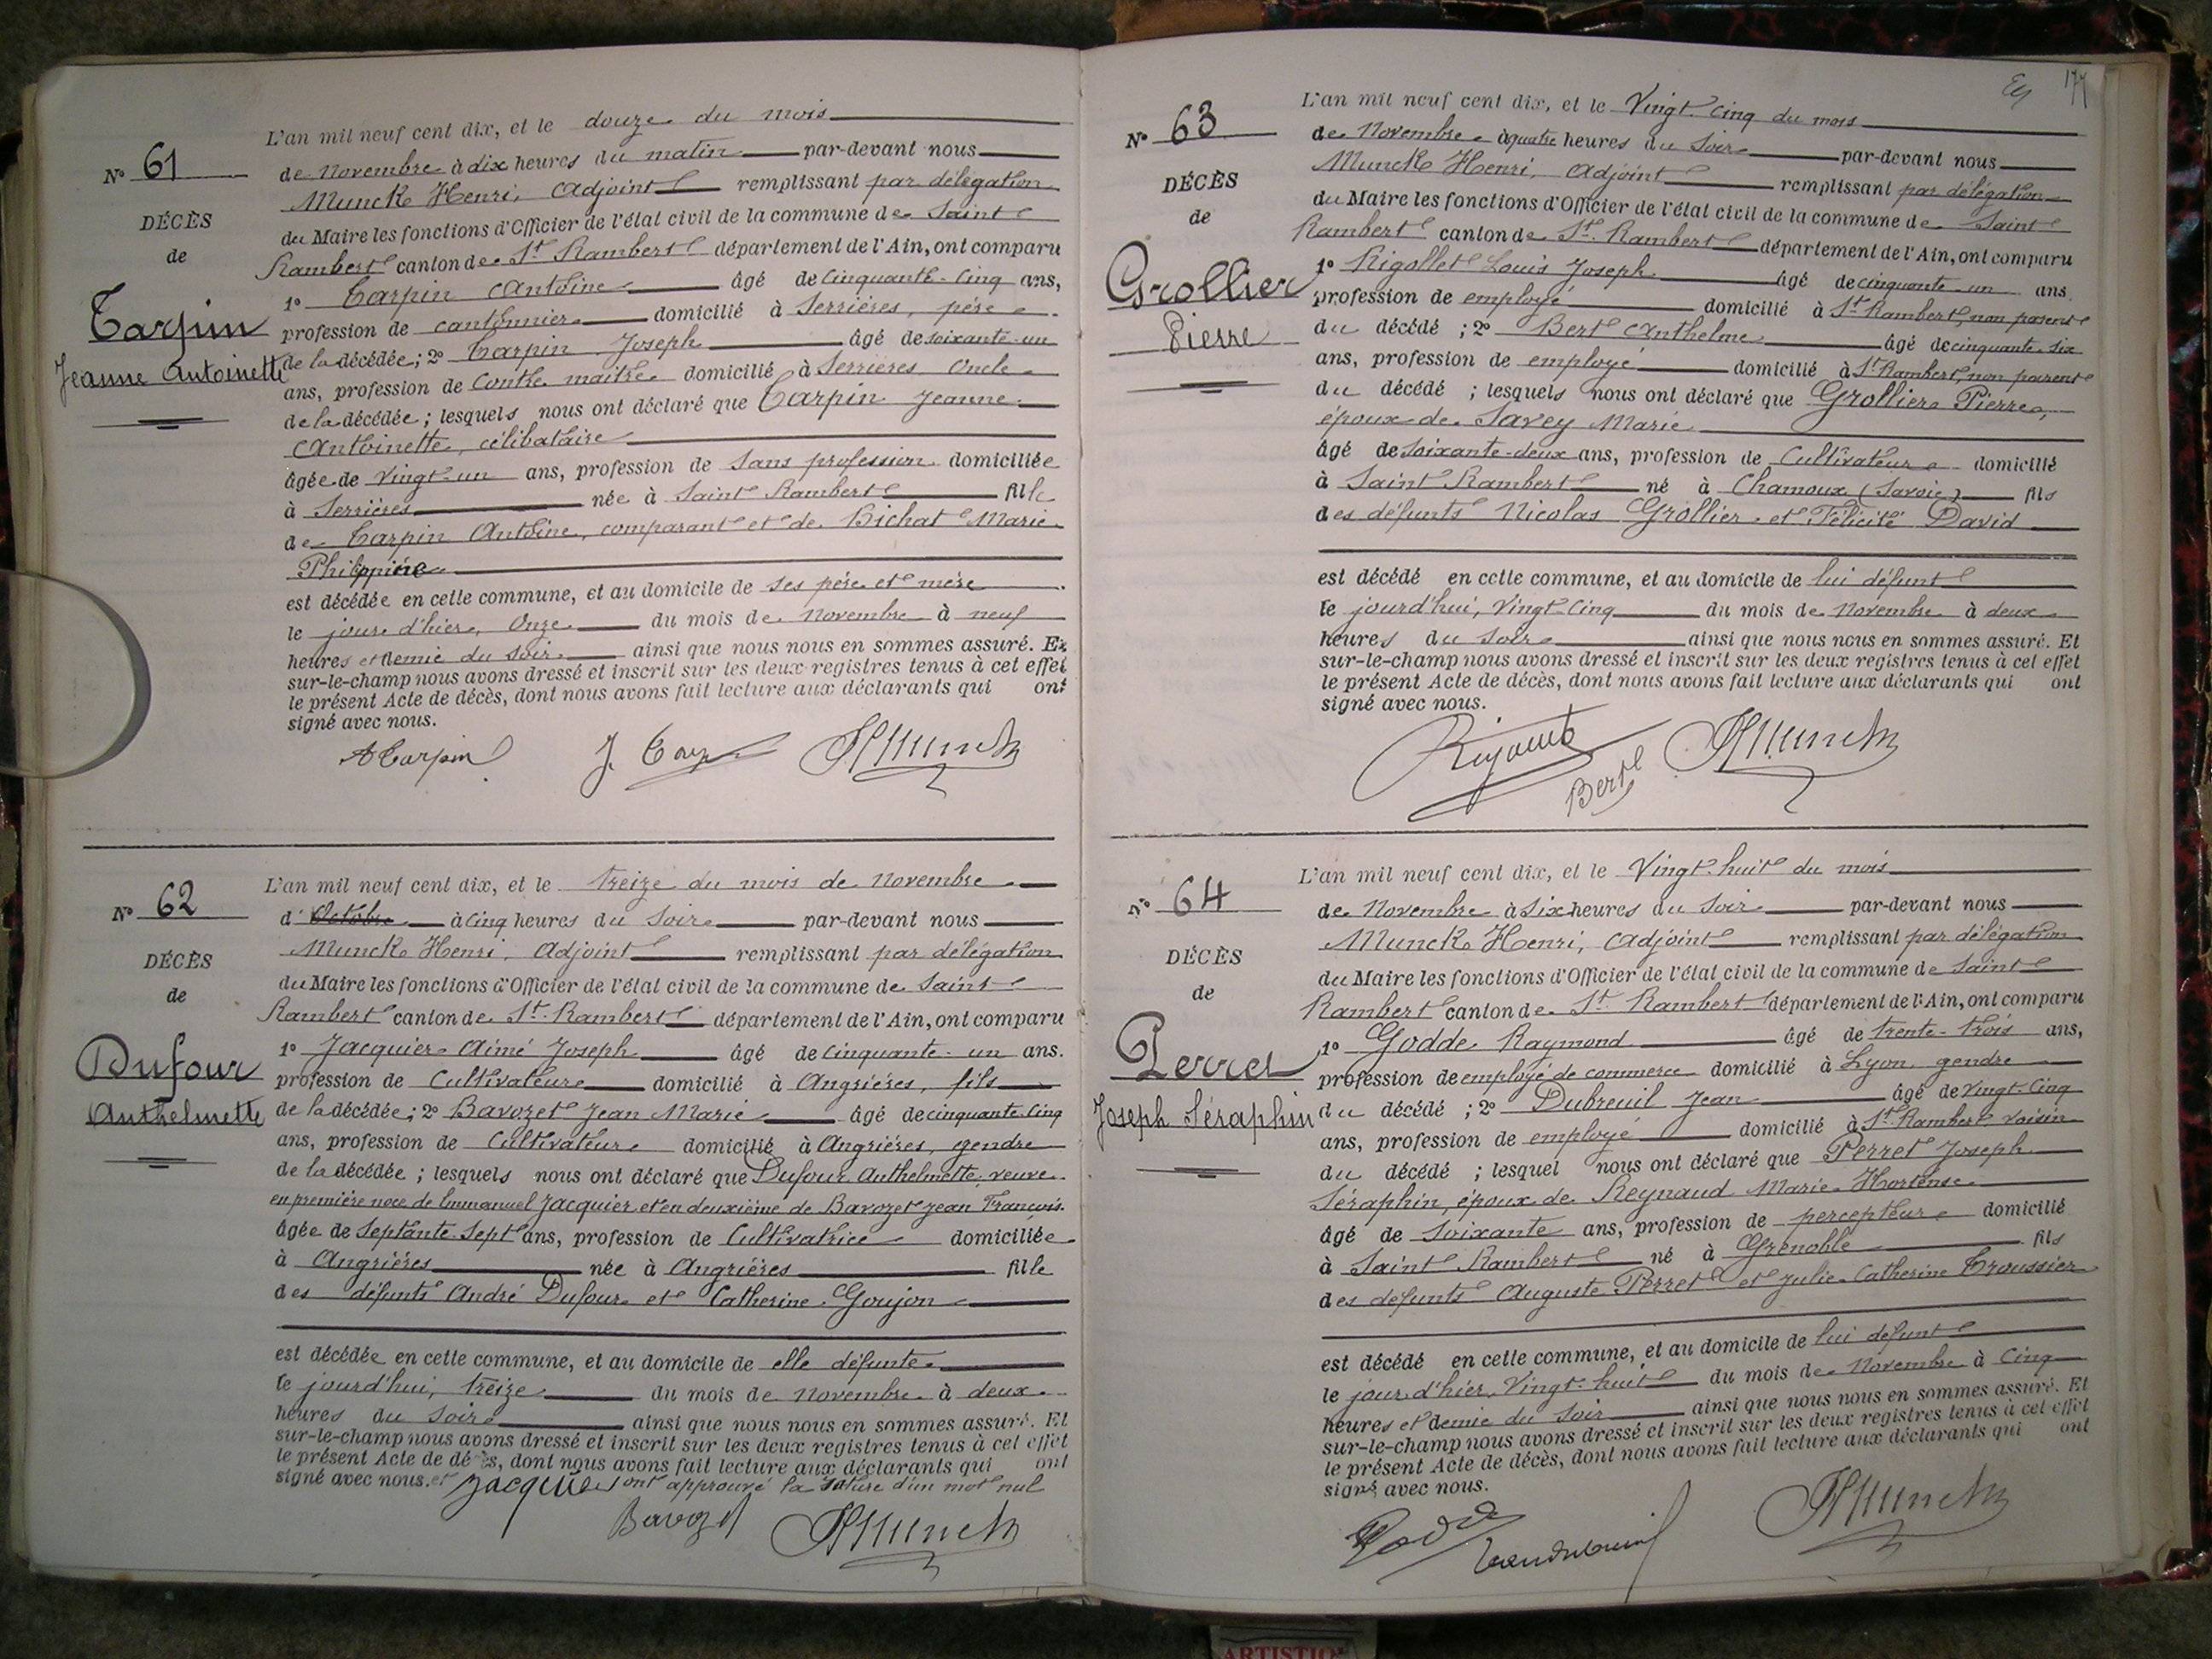 L'an mil neuf cent dix, et le douze du mois
N° 61
de Novembre à dix heures du matin par-devant nous
Munck Henri, Adjoint remplissant par délégation
DÉCÈS
du Maire les fonctions d'Officier de l'état civil de la commune de Saint
de
Rambert canton de St. Rambert département de l'Ain, ont comparu
Tarpin
Jeanne Antoinette
1° Tarpin Antoine âgé de Cinquante-Cinq ans,
profession de cantonnier domicilié à Serrières, père
de la décédée; 2° Tarpin Joseph âgé de soixante-un
ans, profession de Contre maitre domicilié à Serrières Oncle
de la décédée; lesquels nous ont déclaré que Tarpin Jeanne
Antoinette, célibataire
âgée de vingt-un ans, profession de Sans profession domiciliée
à Serrières née à Saint Rambert fille
de Tarpin Antoine, comparant et de Bichat Marie
Philippine
est décédée en cette commune, et au domicile de ses père et mère
le jour d'hier, Onze du mois de Novembre à neuf
heures et demie du soir ainsi que nous nous en sommes assuré. Et
sur-le-champ nous avons dressé et inscrit sur les deux registres tenus à cet effet
le présent Acte de décès, dont nous avons fait lecture aux déclarants qui ont
signé avec nous.
A Tarpin J. HMunck
L'an mil neuf cent dix, et le treize du mois de Novembre
N° 62
d'Octobre à Cinq heures du Soir par-devant nous
Munck Henri, Adjoint remplissant par délégation
DÉCÈS
du Maire les fonctions d'Officier de l'état civil de la commune de Saint
de
Rambert canton de St. Rambert département de l'Ain, ont comparu
Dufour
Anthelmette
1° Jacquier Aimé Joseph âgé de Cinquante-un ans.
profession de Cultivateur domicilié à Angrières, fils
de la décédée; 2° Bavozet Jean Marie âgé de cinquante-Cinq
ans, profession de Cultivateur domicilié à Angrières, gendre
de la décédée; lesquels nous ont déclaré que Dufour Anthelmette, veuve
en première noce de Emmanuel Jacquier et en deuxième de Bavozet Jean François.
âgée de Septante-Sept ans, profession de Cultivatrice domiciliée
à Angrières née à Angrières fille
des défunts André Dufour et Catherine Goujon
est décédée en cette commune, et au domicile de elle défunte
le jourd'hui, treize du mois de Novembre à deux
heures du Soir ainsi que nous nous en sommes assuré. Et
sur-le-champ nous avons dressé et inscrit sur les deux registres tenus à cet effet
le présent Acte de décès, dont nous avons fait lecture aux déclarants qui ont
signé avec nous. et ont approuvé la rature d'un mot nul
Jacquier
Bavozet HMunck
177
L'an mil neuf cent dix, et le Vingt-Cinq du mois
N° 63
de Novembre à quatre heures du Soir par-devant nous
Munck Henri, Adjoint remplissant par délégation
DÉCÈS
du Maire les fonctions d'Officier de l'état civil de la commune de Saint
de
Rambert canton de St. Rambert département de l'Ain, ont comparu
Grollier
Pierre
1° Rigollet Louis Joseph âgé de cinquante-un ans
profession de employé domicilié à St. Rambert, non parent
du décédé; 2° Bert Anthelme âgé de cinquante-six
ans, profession de employé domicilié à St Rambert, non parent
du décédé; lesquels nous ont déclaré que Grollier Pierre,
époux de Savey Marie
âgé de soixante-deux ans, profession de Cultivateur domicilié
à Saint Rambert né à Chamoux (Savoie) fils
des défunts Nicolas Grollier et Félicité David
est décédé en cette commune, et au domicile de lui défunt
le jourd'hui, Vingt-Cinq du mois de Novembre à deux
heures du Soir ainsi que nous nous en sommes assuré. Et
sur-le-champ nous avons dressé et inscrit sur les deux registres tenus à cet effet
le présent Acte de décès, dont nous avons fait lecture aux déclarants qui ont
signé avec nous.
Bert HMunck
L'an mil neuf cent dix, et le Vingt-huit du mois
N° 64
de Novembre à Six heures du Soir par-devant nous
Munck Henri, Adjoint remplissant par délégation
DÉCÈS
du Maire les fonctions d'Officier de l'état civil de la commune de Saint
de
Rambert canton de St. Rambert département de l'Ain, ont comparu
Perret
Joseph Séraphin
1° Godde Raymond âgé de trente-trois ans,
profession de employé de commerce domicilié à Lyon, gendre
du décédé; 2° Dubreuil Jean âgé de Vingt-Cinq
ans, profession de employé domicilié à St. Rambert voisin
du décédé; lesquel nous ont déclaré que Perret Joseph
Séraphin, époux de Reynaud Marie Hortense
âgé de Soixante ans, profession de percepteur domicilié
à Saint Rambert né à Grenoble fils
des défunts Auguste Perret et Julie Catherine Troussier
est décédé en cette commune, et au domicile de lui défunt
le jour d'hier, Vingt-huit du mois de Novembre à Cinq
heures et demie du Soir ainsi que nous nous en sommes assuré. Et
sur-le-champ nous avons dressé et inscrit sur les deux registres tenus à cet effet
le présent Acte de décès, dont nous avons fait lecture aux déclarants qui ont
signé avec nous.
Godde HMunck